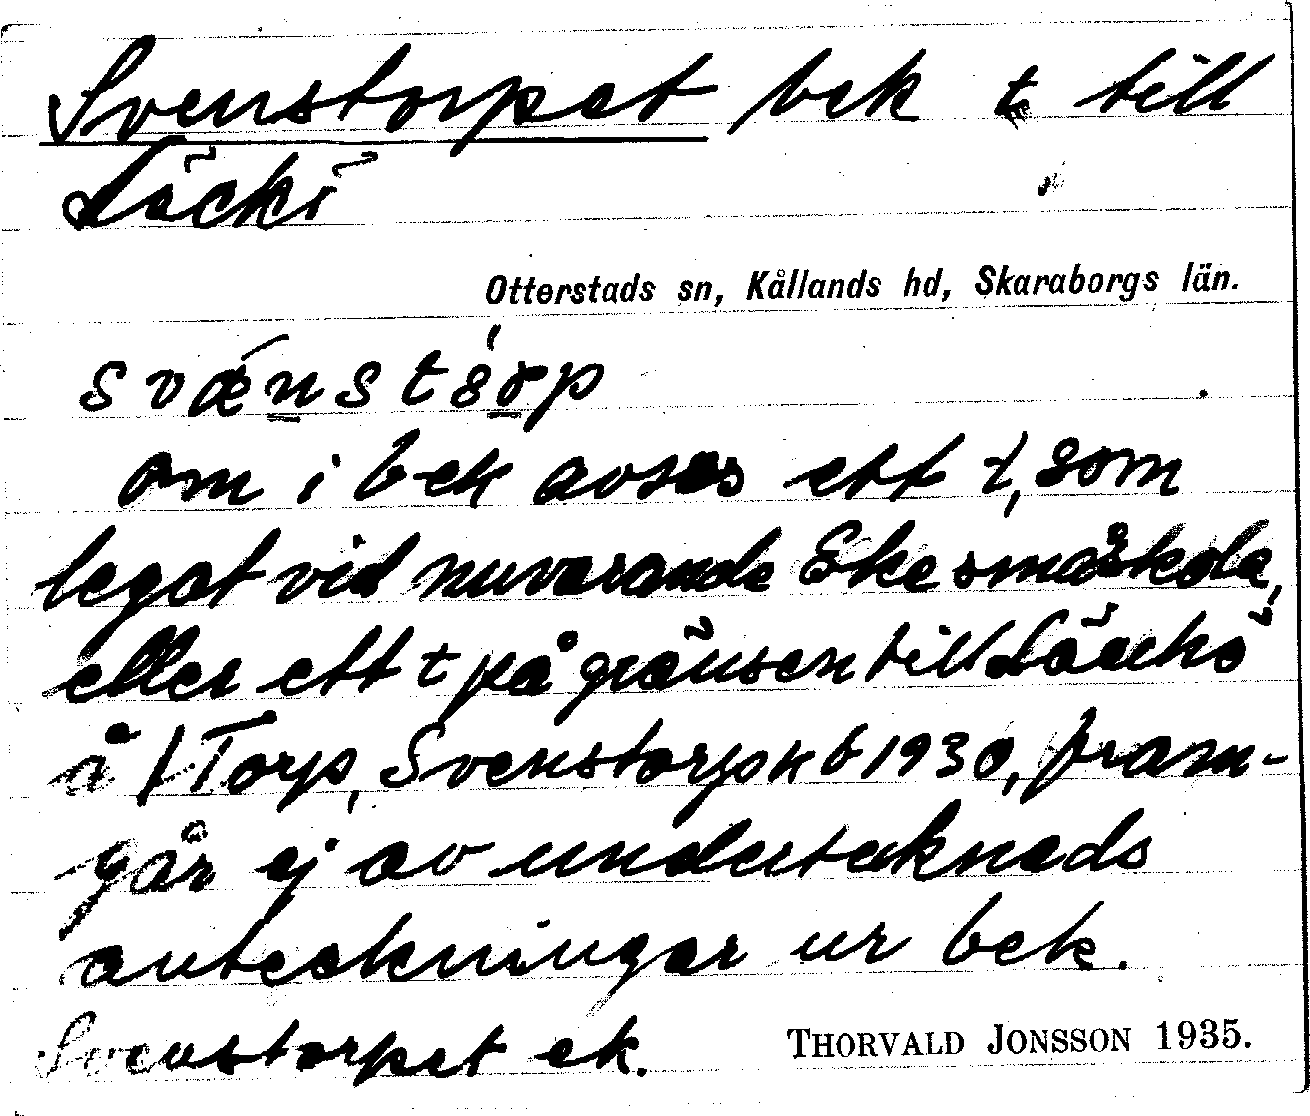 Svenstorpet bek t till
Läckö
Otterstads sn, Kållands hd, Skaraborgs län.
svǽnstórp
om i bek avses ett t, som
legat vid nuvarande Eke småskola,
eller ett t på gränsen till Läckö
å /Torp, Svenstorp kb 1930, fram-
går ej av undertecknads
anteckningar ur bek.
Svenstorpet ek.
THORVALD JONSSON 1935.